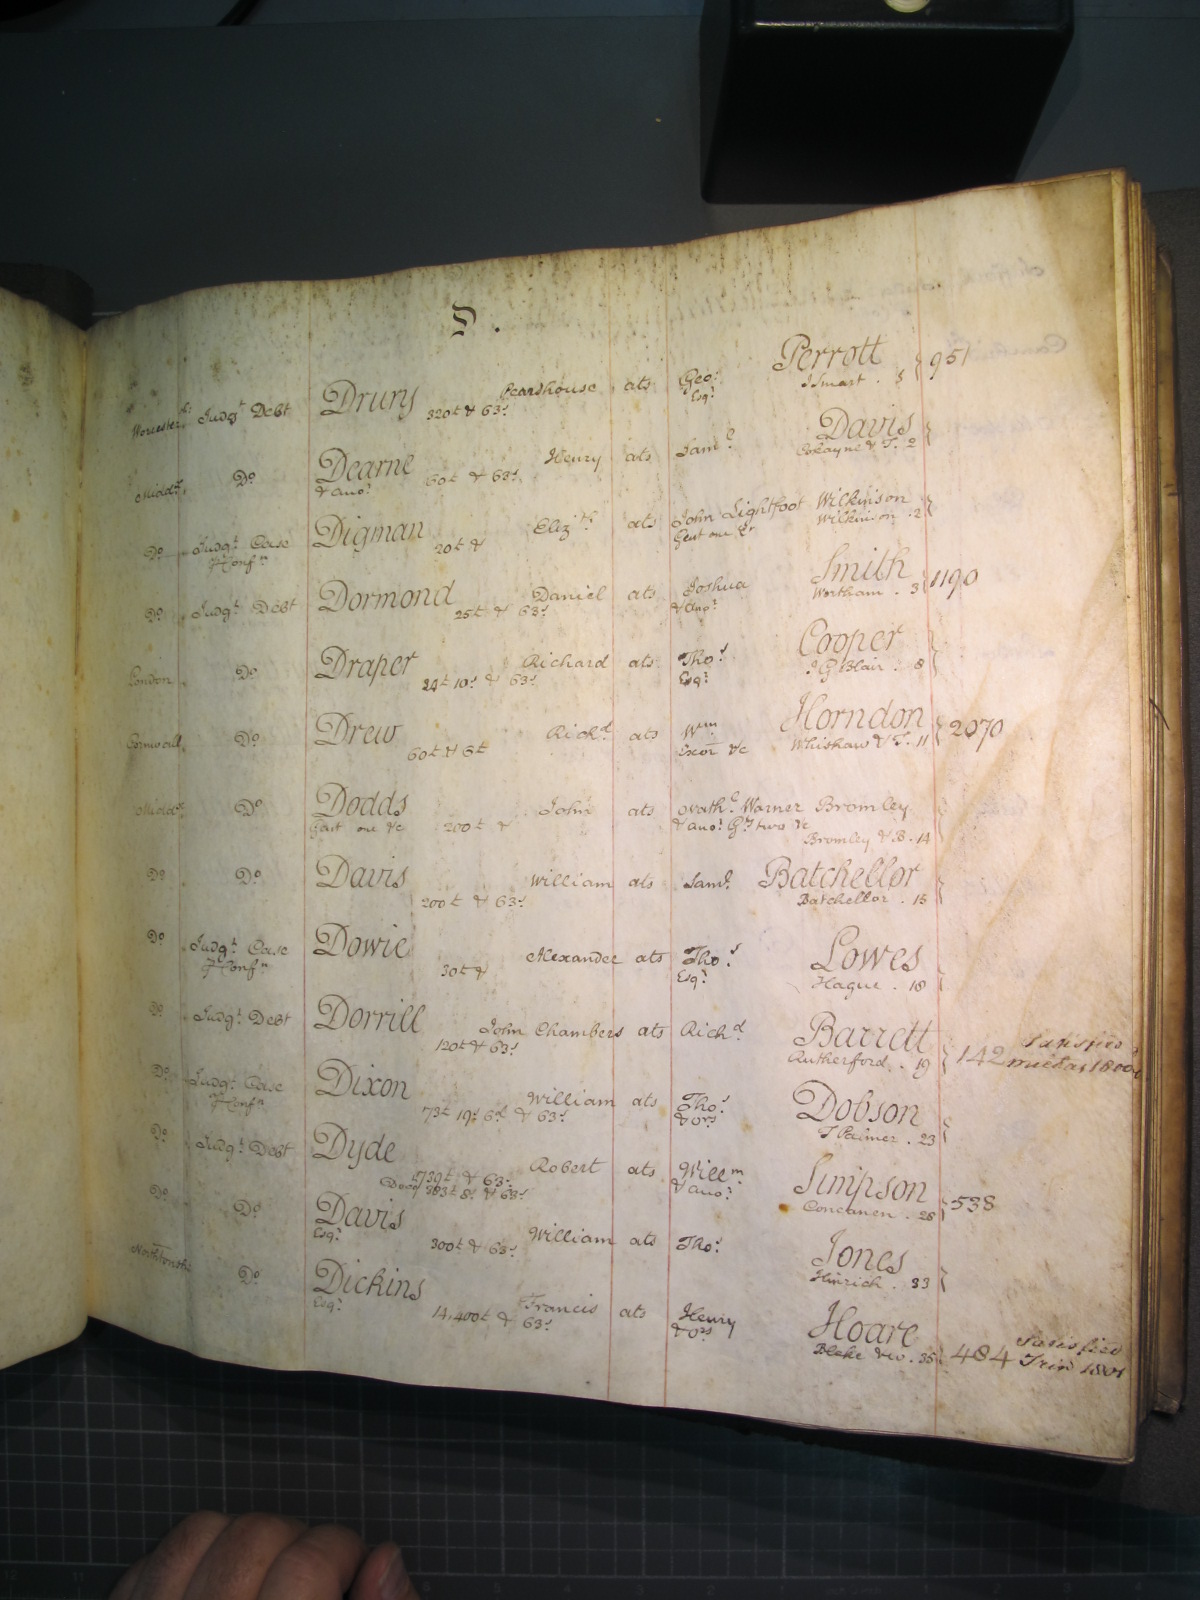 D.
Worcester Judgt Debt Drury Pearshouse ats Geo: Perrott 951
320£ & 63s Esqr J Smart . 5
Middx Do Dearne Henry ats Saml Davis
& anor 60£ & 63s Cokayne & T. 2
Do Judgt Case Digman Elizth ats John Lightfoot Wilkinson
pr Confn 20£ & Gent one &c Wilkinson . 2
Do Judgt Debt Dormond Daniel ats Joshua Smith 1190
25£ & 63s & anor Wortham . 3
London Do Draper Richard ats Thos Cooper
24£ 10s & 63s Esqr G Blair . 8
Cornwall Do Drew Richd ats Wm Horndon 2070
60£ & 6£ Exor &c Whishaw & T. 11
Middx Do Dodds John ats Warner Bromley
Gent one &c 200£ & & anor Gts two &c
Bromley & B. 14
Do Do Davis William ats Saml Batchellor
200£ & 63s Batchellor . 15
Do Judgt Case Dowie Alexander ats Thos Lowes
pr Confn 30£ & Esqr Hague . 18
Do Judgt Debt Dorrill John Chambers ats Richd Barrett 142 Satisfied
120£ & 63s Rutherford . 19 Michas 1800
Do Judgt Case Dixon William ats Thos Dobson
pr Confn 73£ 19s 6d & 63s & ors T Palmer . 23
Do Judgt Debt Dyde Robert ats Willm Simpson 538
1739£ & 63s & anor Concanen . 28
& 63s
Do Do Davis William ats Thos Jones
Esqr 300£ & 63s Hinrich . 33
Northtonsh Do Dickins Francis ats Henry Hoare 484 Satisfied
Esqr 14,400£ & 63s & ors Blake &c . 35 Trin 1801